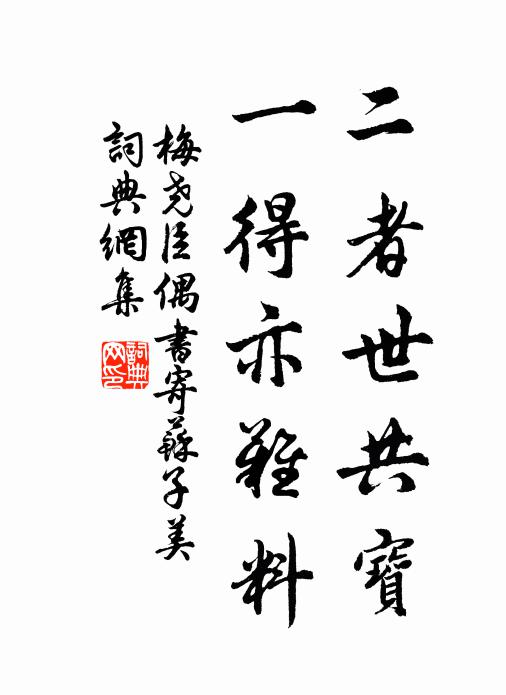 二者世共寶
一得亦難料
梅尧臣偶書寄蘇子美
詞典網集
詞典網印